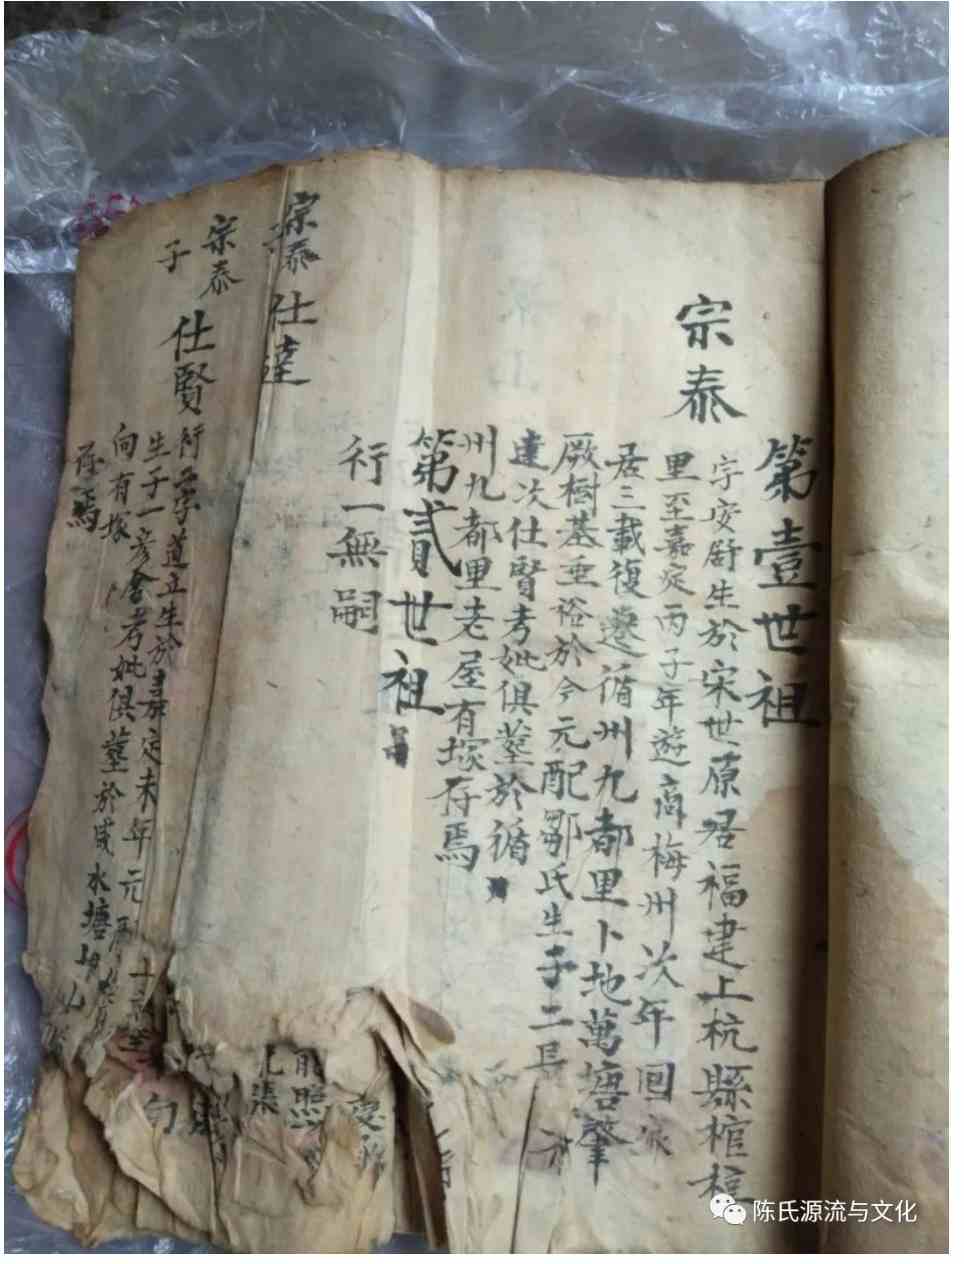 第壹世祖
宗泰
字安爵生於宋世原居福建上杭縣棺梹
里至嘉定丙子年遊商梅州次年回家
居三載復遷循州九都里卜地萬塘肇
厥樹基垂裕於今元配鄒氏生子二長
達次仕賢考妣俱塟於循
州九都里老屋有塚存焉
第貳世祖
宗泰
子
仕達
行一無嗣
宗泰
子
仕賢
行二字道立生於嘉定未年元
生子一彦會考妣俱塟於咸水塘
向有塚
存焉
陈氏源流与文化